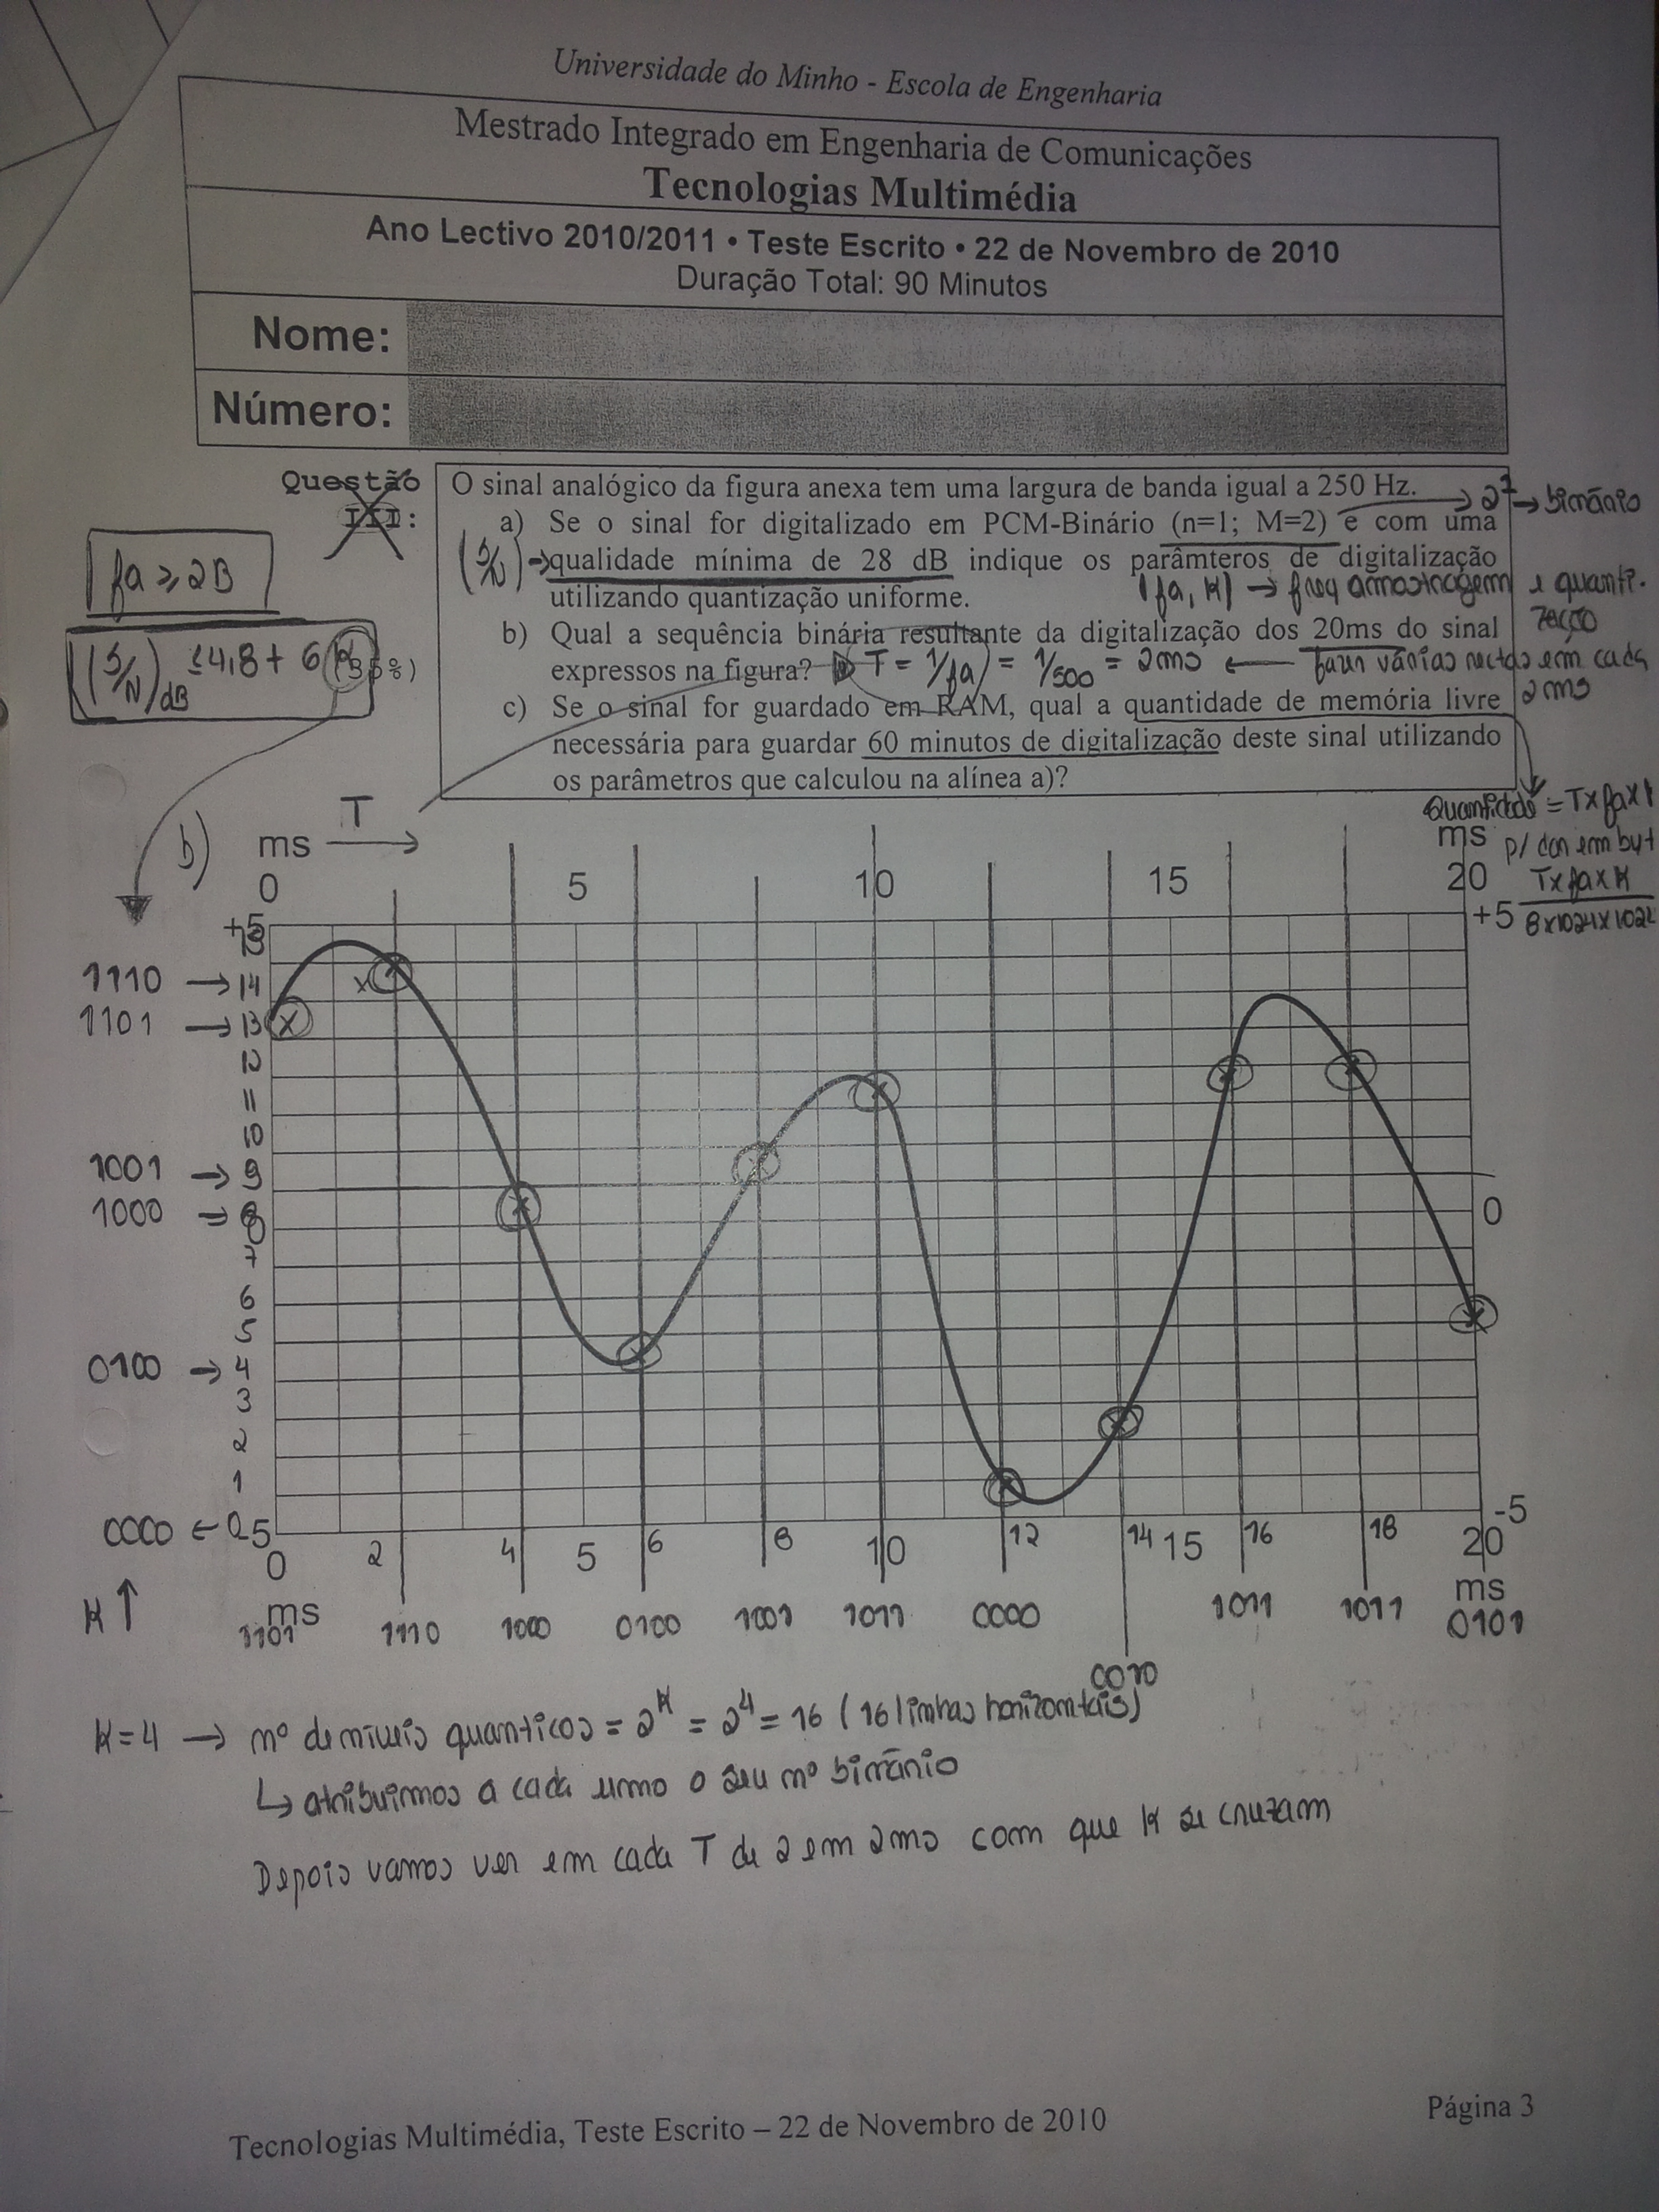 Universidade do Minho - Escola de Engenharia
Mestrado Integrado em Engenharia de Comunicações
Tecnologias Multimédia
Ano Lectivo 2010/2011 • Teste Escrito • 22 de Novembro de 2010
Duração Total: 90 Minutos
Nome:
Número:
Questão
III:
O sinal analógico da figura anexa tem uma largura de banda igual a 250 Hz.
→ 2¹ → binário
a) Se o sinal for digitalizado em PCM-Binário (n=1; M=2) e com uma
(S/N) → qualidade mínima de 28 dB indique os parâmteros de digitalização
utilizando quantização uniforme.
(fa, K) → freq amostragem e quanti-
zação
fa ≥ 2B
(S/N)dB ≤ 4,8 + 6 K
(35%)
b) Qual a sequência binária resultante da digitalização dos 20ms do sinal
expressos na figura?
T = 1/fa = 1/500 = 2ms ← fazer várias rectas em cada
2ms
c) Se o sinal for guardado em RAM, qual a quantidade de memória livre
necessária para guardar 60 minutos de digitalização deste sinal utilizando
os parâmetros que calculou na alínea a)?
Quantidade = T x fa x
p/ dar em byt
T x fa x K
8x1024x102
b)
T
ms
ms
0 5 10 15 20
+5
+5
15
1110 → 14
1101 → 13
12
11
10
1001 → 9
1000 → 8
7
6
5
0100 → 4
3
2
1
0000 ← 0
-5
0
-5
0 2 4 5 6 8 10 12 14 15 16 18 20
ms
ms
K ↑
1101 1110 1000 0100 1001 1011 0000 0010 1011 1011 0101
K=4 → nº de niveis quanticos = 2^K = 2^4 = 16 (16 linhas horizontais)
↳ atribuimos a cada uma o seu nº binário
Depois vamos ver em cada T de 2 em 2ms com que K se cruzam
Tecnologias Multimédia, Teste Escrito – 22 de Novembro de 2010
Página 3